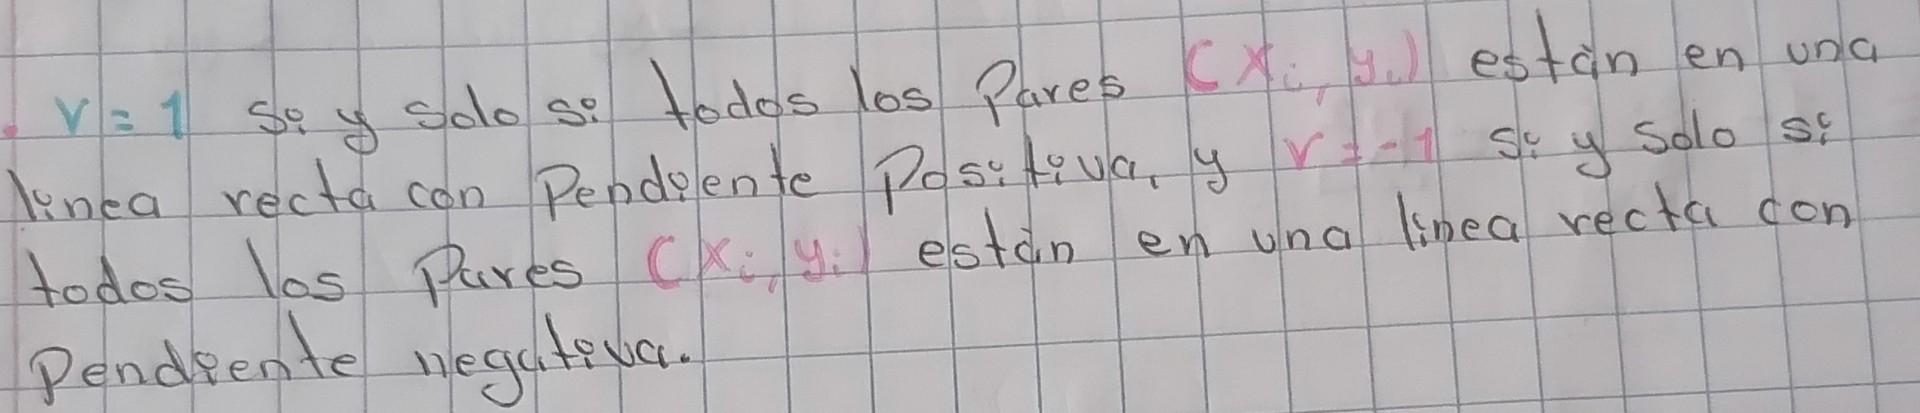 r = 1 si y solo si todos los Pares (xi, yi) están en una
línea recta con Pendiente Positiva, y r = -1 si y solo si
todos los Pares (xi, yi) están en una línea recta con
Pendiente negativa.